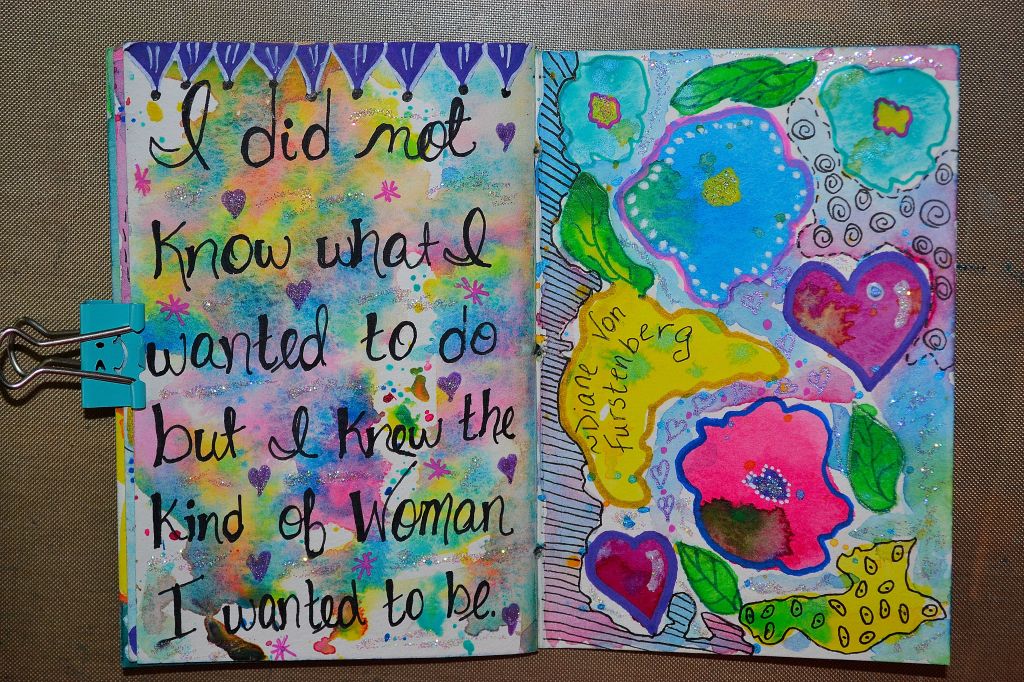 I did not
Know what I
wanted to do
but I Knew the
Kind of Woman
I wanted to be.
~Diane Von
Furstenberg